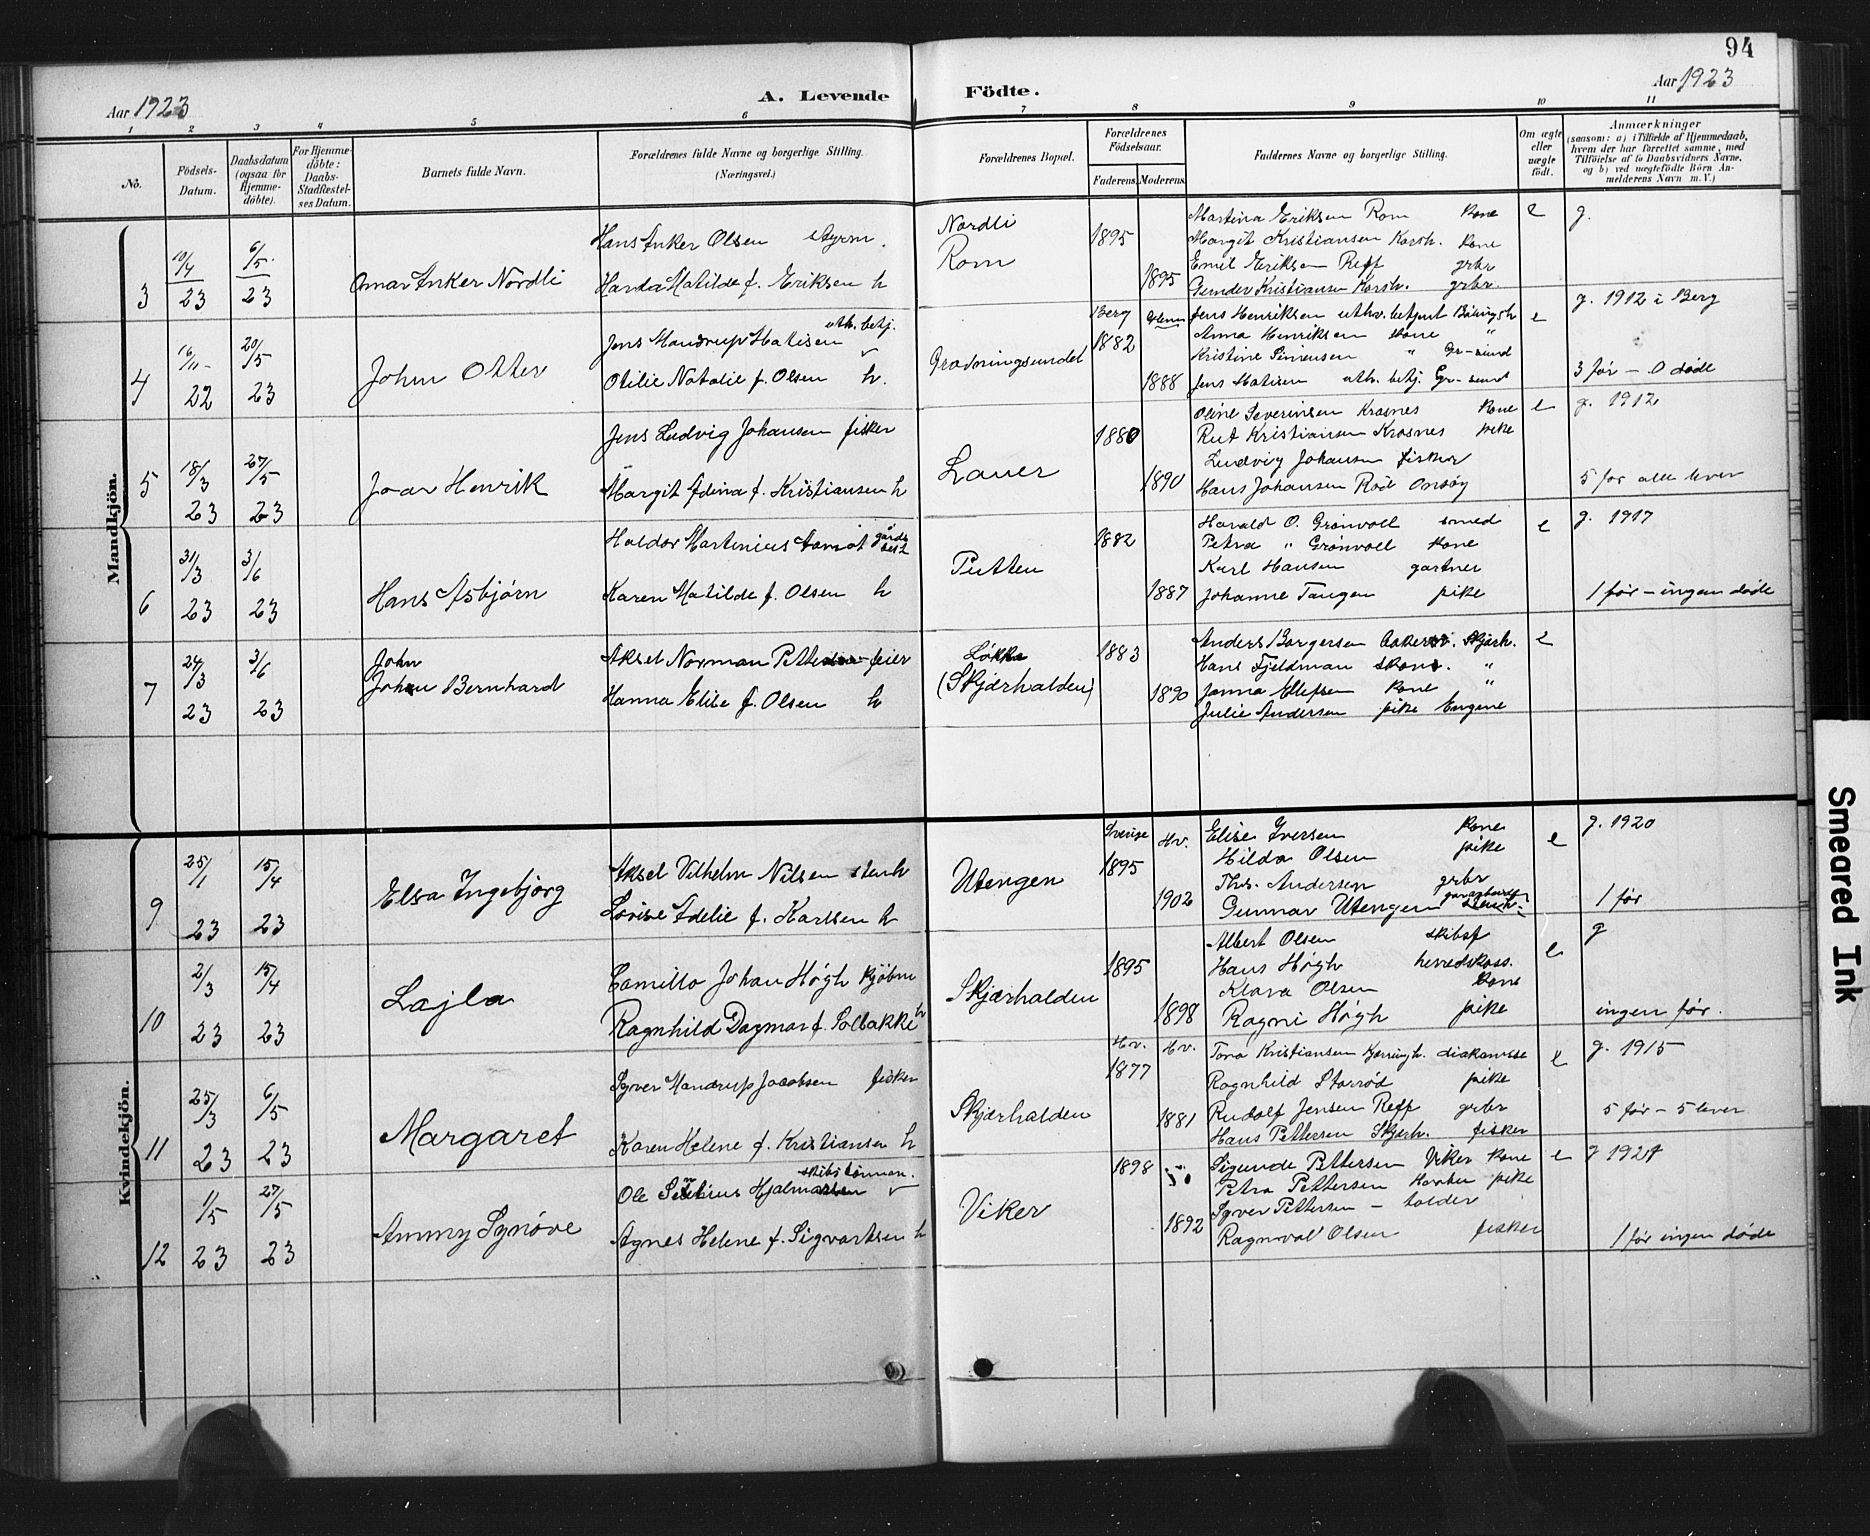 94
Aar 1923
A. Levende Födte.
Aar 1923
1 2 3 4 5 6 7 8 9 10 11
No.
Födsels-Datum.
Daabsdatum (ogsaa for Hjemme-döbte).
For Hjemme-döbte: Daabs-Stadfæstel-ses Datum.
Barnets fulde Navn.
Forældrenes fulde Navne og borgerlige Stilling. (Næringsvei.)
Forældrenes Bopæl.
Forældrenes Födselsaar.
Faderens. Moderens.
Faddernes Navne og borgerlige Stilling.
Om ægte eller uægte födt.
Anmærkninger
(saasom: a) i Tilfælde af Hjemmedaab, hvem der har forrettet samme, med Tilföielse af to Daabsvidners Navne, og b) ved uægtefödte Börn An-melderens Navn m. V.)
Mandkjön.
3
10/4 23
6/5 23
Omar Anker Nordli
Hans Anker Olsen styrm.
Harda Matilde f. Eriksen h
Nordli
Rom
1895
1895
Martina Eriksen Rom kone
Margit Kristiansen Korsh. kone
Emil Eriksen Reff grbr
Gunder Kristiansen Korsh. grbr.
e
g.
4
16/11 22
20/5 23
John Otter
Jens Mandrup Matisen uth. betj.
Otilie Natalie f. Olsen h.
Gravningsundet
Berg
1882
Glemm
1888
Jens Henriksen uthv. betjent
Anna Henriksen kone "
Kristine Simensen " Gr-sund
Jens Matisen uth. betj. Gr-sund
e
g. 1912 i Berg
3 før - 0 døde
5
18/3 23
27/5 23
Joar Henrik
Jens Ludvig Johansen fisker
Margit Adina f. Kristiansen h
Lauer
1880
1890
Oline Severinsen Krosnes kone
Rut Kristiansen Krosnes pike
Ludvig Johansen fisker
Hans Johansen Rød Onsøy
e
g. 1912
5 før alle lever
6
31/3 23
3/6 23
Hans Asbjørn
Haldor Martinius
Karen Matilde f. Olsen h
Putten
1882
1887
Harald O. Grønvoll smed
Petra " Grønvoll kone
Karl Hansen gartner
Johanne Tangen pike
e
g. 1917
1 før - ingen døde
7
24/3 23
3/6 23
John
Johan Bernhard
Aksel Norman Pettersen feier
Hanna Elise f. Olsen h
Løkka
(Skjærhalden)
1883
1890
Anders Borgersen Skjærh.
Hans Fjeldman skom. "
Janna Ellefsen kone "
Julie Andersen pike Engene
e
Kvindekjön.
9
25/1 23
15/4 23
Elsa Ingebjørg
Aksel Vilhelm Nilsen stenh
Lovise Adelie f. Karlsen h
Utengen
Sverige
1895
Hv.
1902
Elise Iversen kone
Hilda Olsen pike
Ths. Andersen grbr
Gunnar Utengen
e
g. 1920
1 før
10
2/3 23
15/4 23
Lajla
Camillo Johan Høgh kjøbm
Ragnhild Dagmar f. Solbakke h
Skjærhalden
1895
1898
Albert Olsen skibsf
Hans Høgh herredskass.
Klara Olsen kone
Ragni Høgh pike
e
g
ingen før.
11
25/3 23
6/5 23
Margaret
Syver Mandrup Jacobsen fisker
Karen Helene f. Kristiansen h
Skjærhalden
Hv.
1877
Hv.
1881
Tora Kristiansen Kjerringh. diakonisse
Ragnhild Storrød pike
Rudolf Jensen Reff grbr
Hans Pettersen Skjærh. fisker
e
g. 1915
5 før - 5 lever
12
1/5 23
27/5 23
Ammy Synøve
Ole Hjalmarsen skibstømmerm.
Agnes Helene f. Sigvartsen h
Viker
1898
1892
Sigunde Pettersen Viker kone
Petra Pettersen pike
Syver Pettersen - tolder
Ragnval Olsen fisker
e
g 1921
1 før ingen døde
Smeared Ink